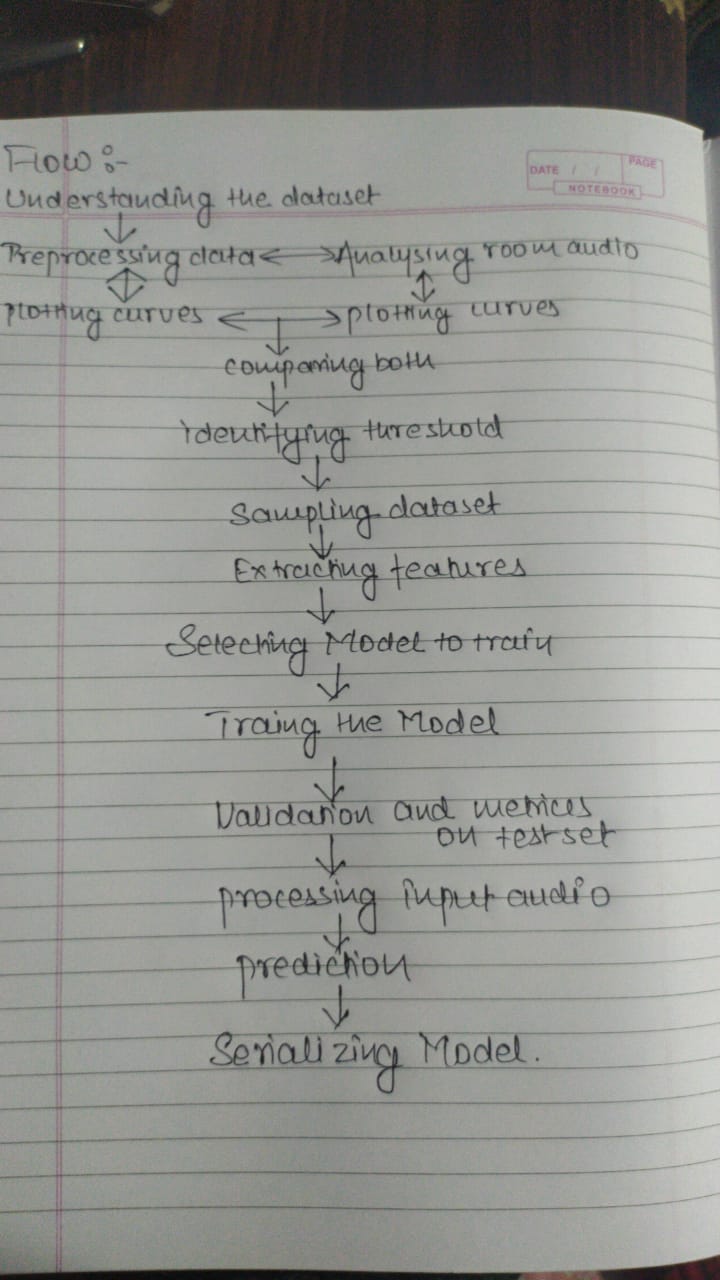 Flow :-
DATE / / PAGE
NOTEBOOK
Understanding the dataset
Preprocessing data Analysing room audio
plotting curves plotting curves
comparing both
identifying threshold
Sampling dataset
Extracting features
Selecting Model to train
Traing the Model
Validation and metrices
on test set
processing input audio
prediction
Serializing Model.